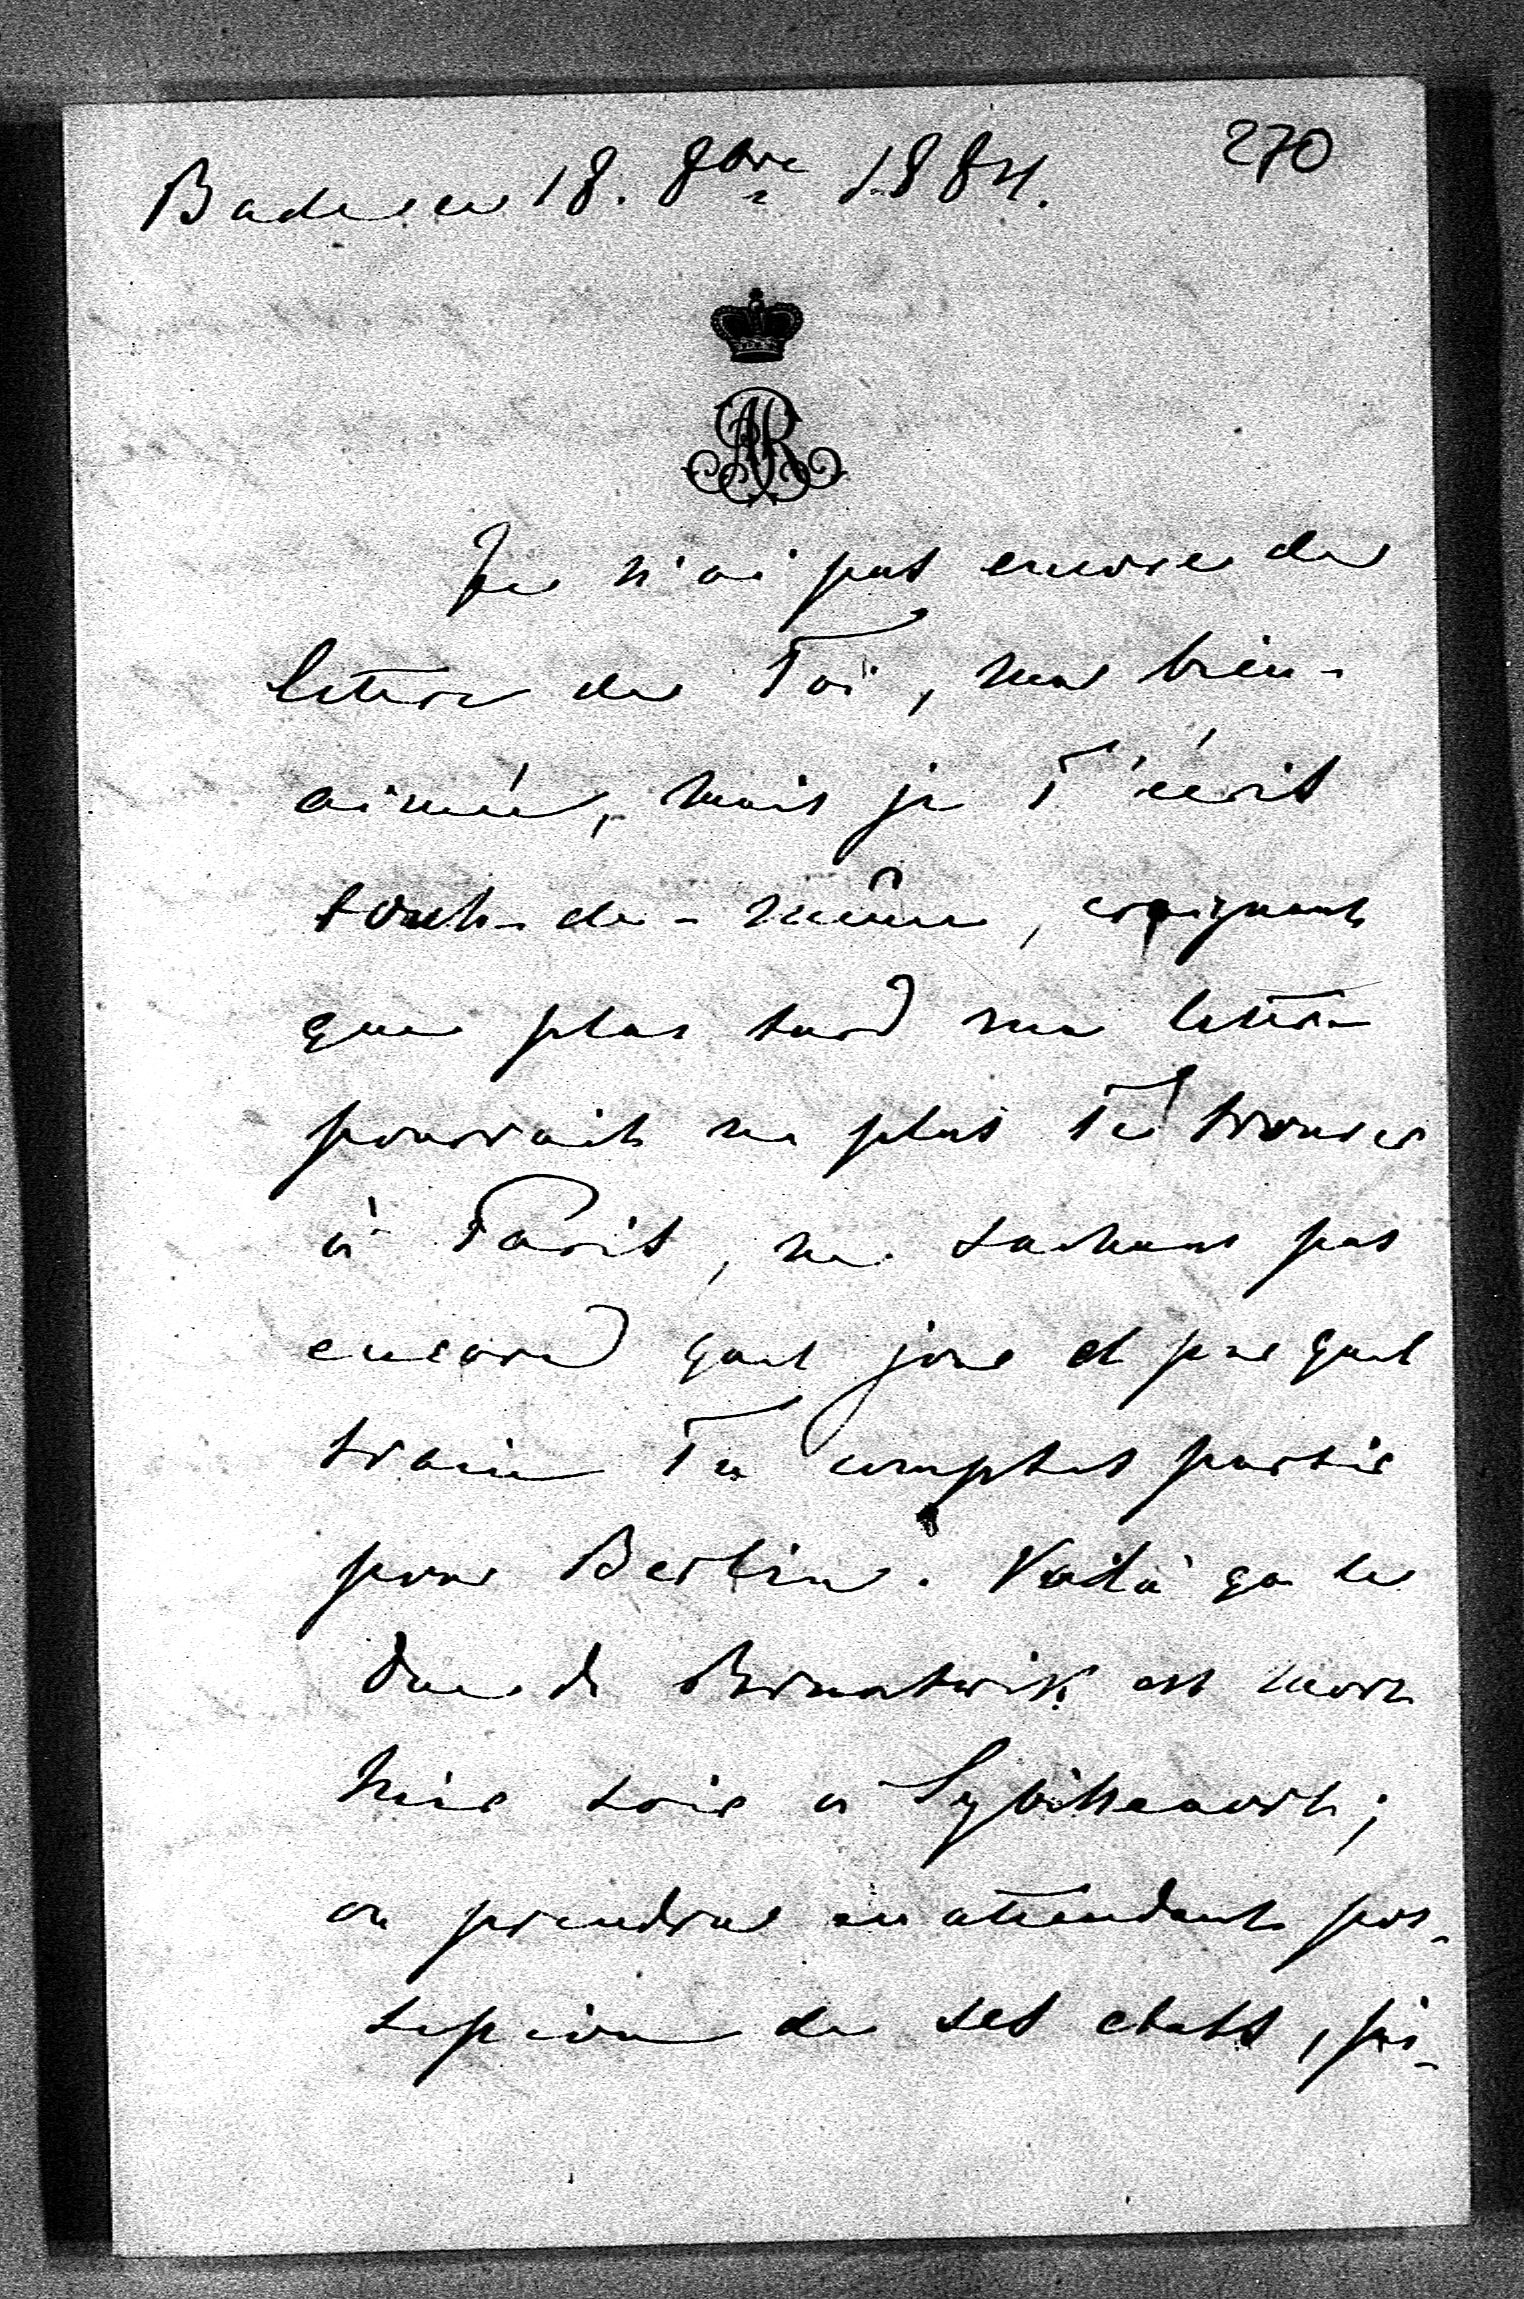 270
Baden ce 18. 8bre 1884.
AR
Je n'ai pas encore de
lettre de Toi, ma bien-
aimée, mais je T'écris
tout-de-même, craignant
que plus tard ma lettre
pourrait ne plus Te trouver
à Paris, ne sachant pas
encore quel jour et par quel
train Tu comptes partir
pour Berlin. Voilà que le
duc de Brunswik est mort
hier soir à Sybillenort;
on prendra en attendant pos-
session de ses états,